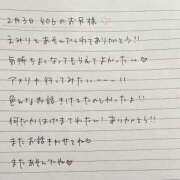 2月3日 406のお兄様♡
えみりとあそんでくれてありがとう!!
気持ちよくなってもらえてよかった…♡
アメリカ行ってみたい−−−!!
色んなお話きけてたのしかったよ!!
ありがとう!!
またお話きかせてね♡
またあそんでね♡